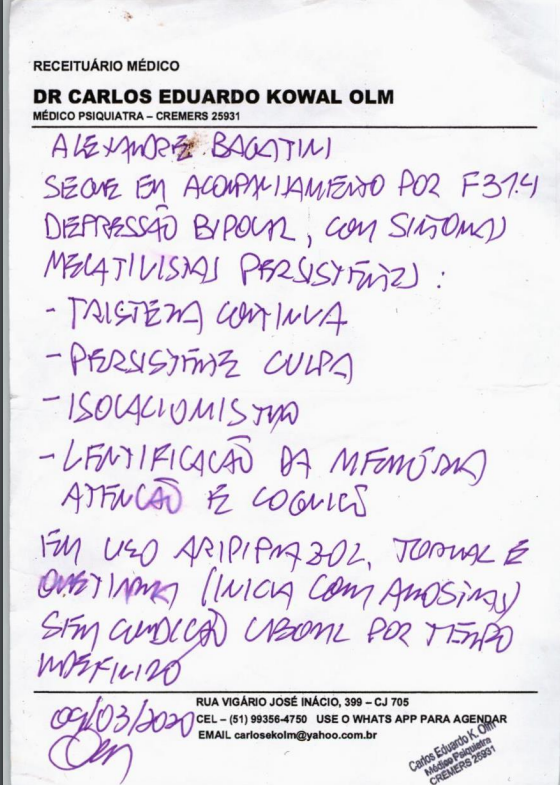 RECEITUÁRIO MÉDICO
DR CARLOS EDUARDO KOWAL OLM
MÉDICO PSIQUIATRA – CREMERS 25931
ALEXANDRE BAGATINI
SEGUE EM ACOMPANHAMENTO POR F31.4
DEPRESSÃO BIPOLAR, COM SINTOMAS
NEGATIVISTAS PERSISTENTES :
- TRISTEZA CONTINUA
- PERSISTENTE CULPA
- ISOLACIONISTA
- LENTIFICAÇÃO DA MEMÓRIA
ATENÇÃO E
EM USO ARIPIPRAZOL, E
(INICIA COM
SEM CONDIÇÃO LABORAL POR TEMPO
INDEFINIDO
RUA VIGÁRIO JOSÉ INÁCIO, 399 – CJ 705
09/03/2020 CEL – (51) 99356-4750 USE O WHATS APP PARA AGENDAR
EMAIL carlosekolm@yahoo.com.br
Carlos Eduardo K. Olm
Médico Psiquiatra
CREMERS 25931